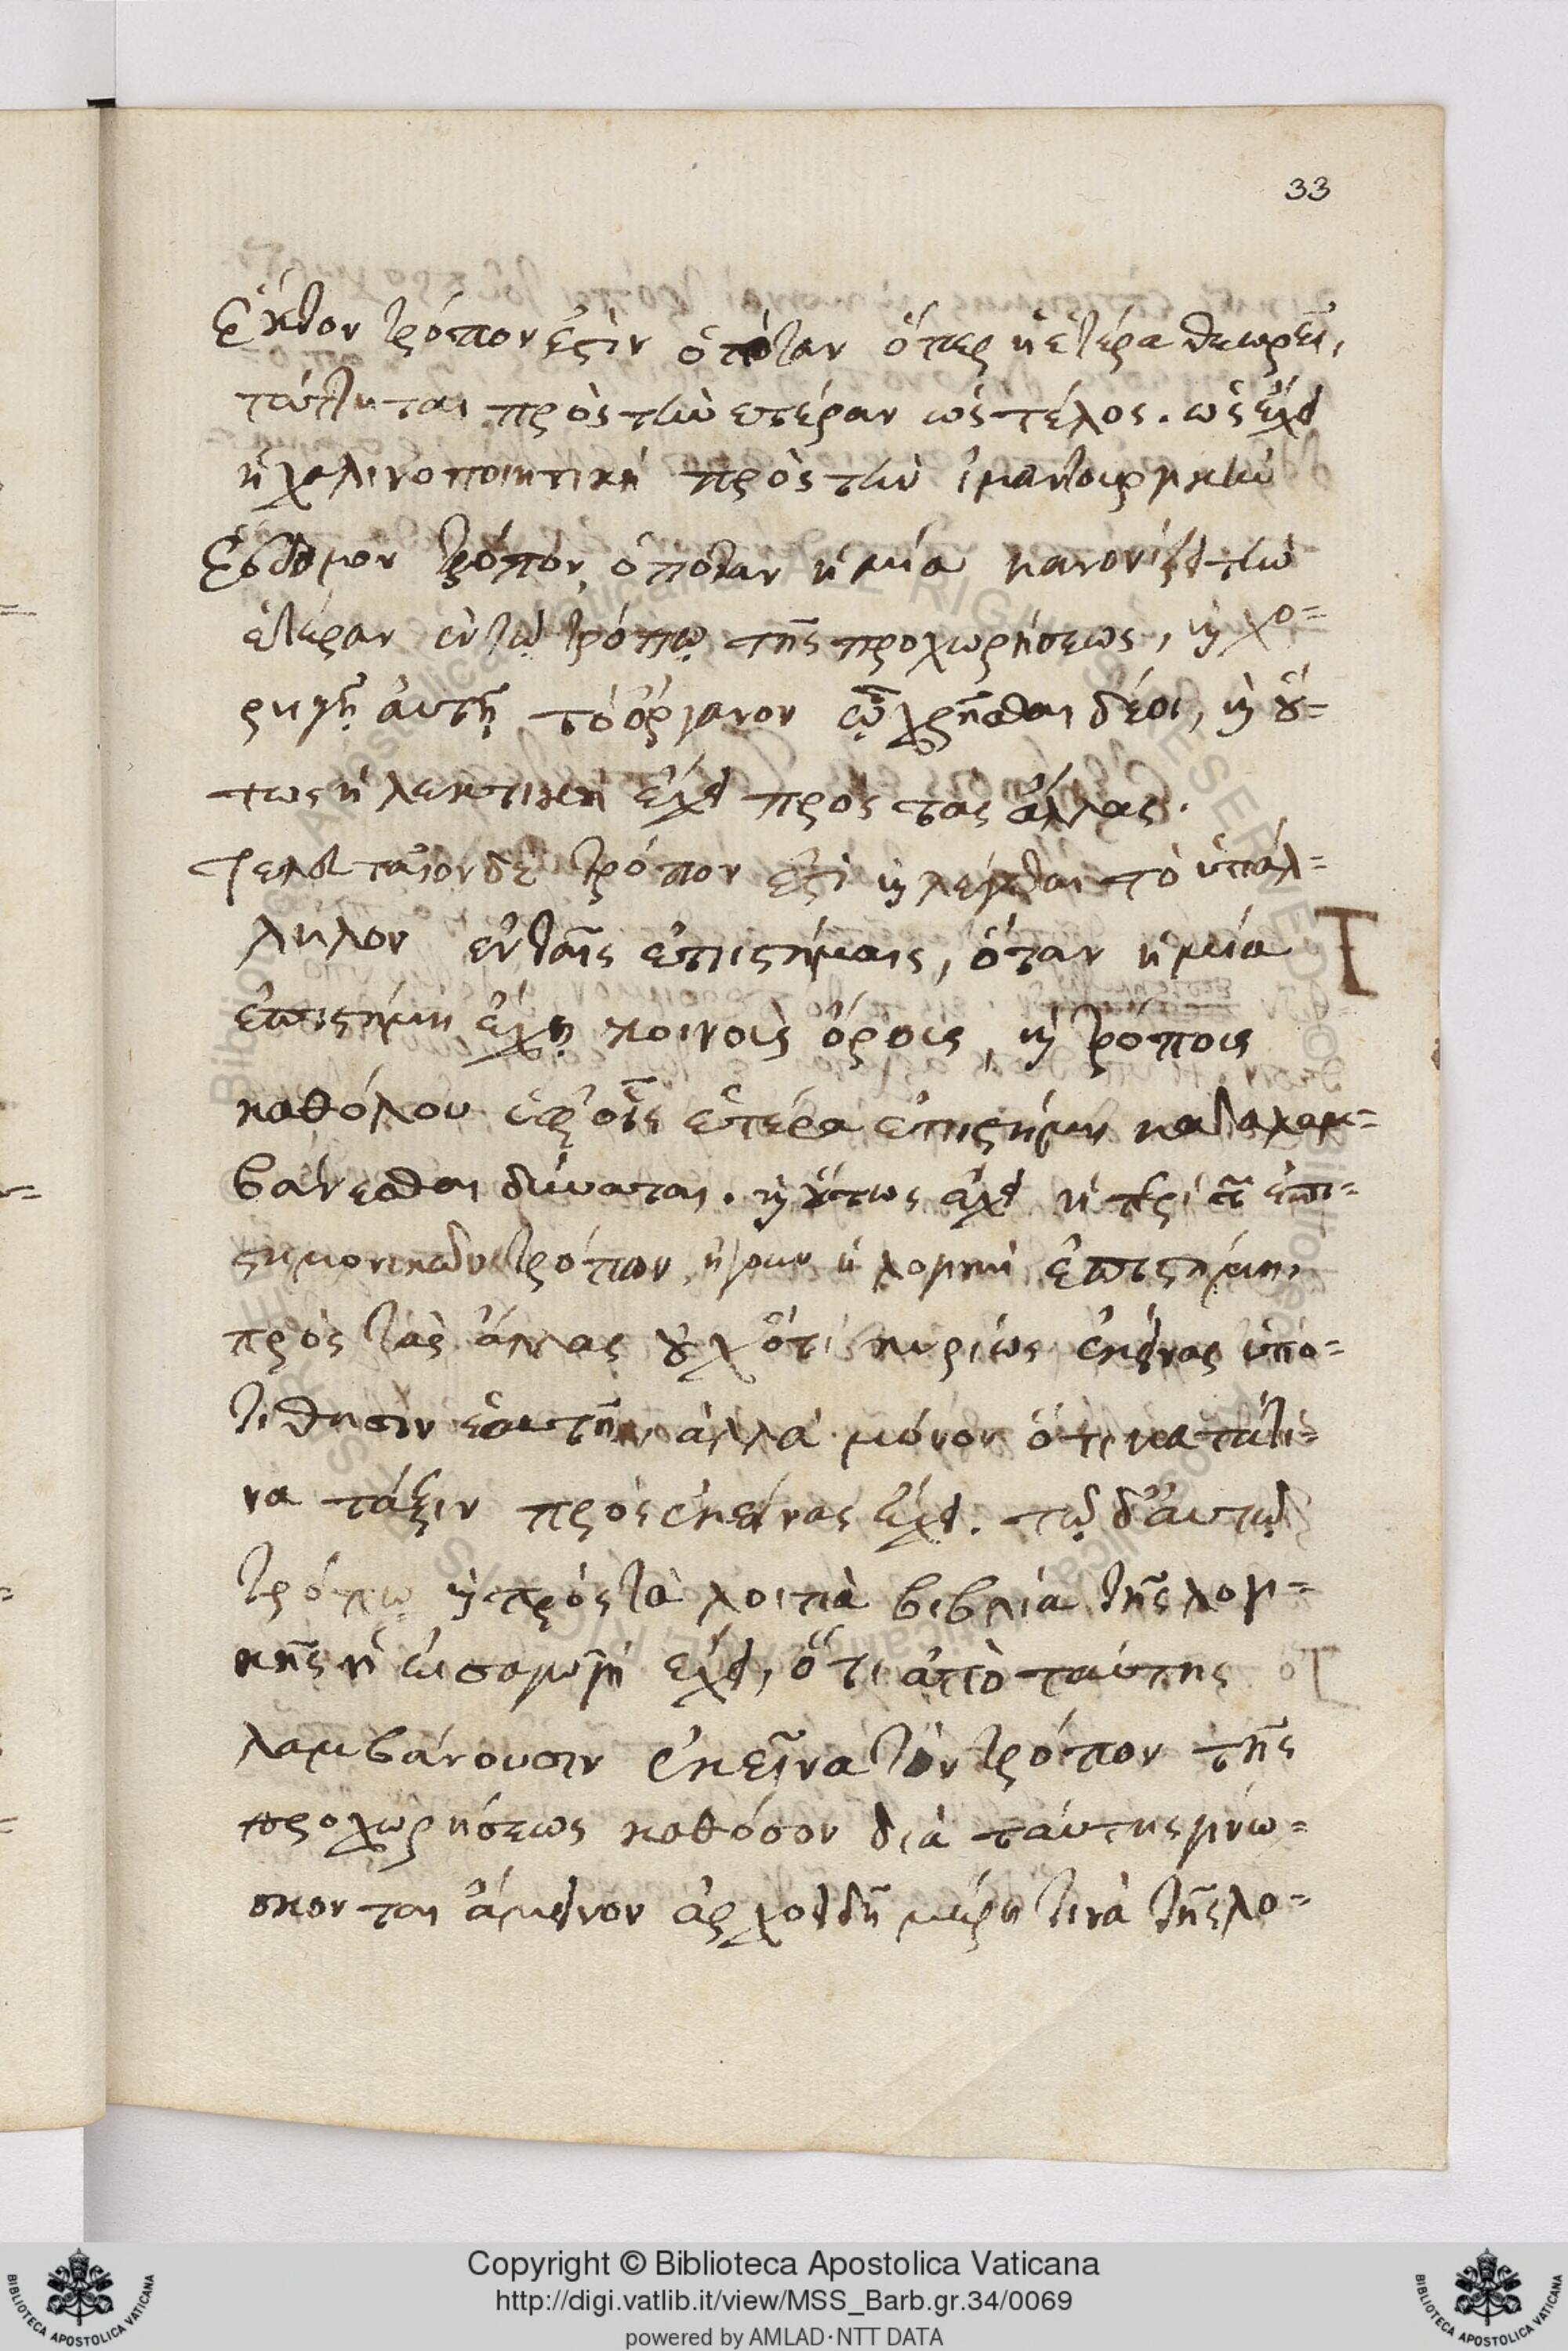 33
Ἕκτον τρόπον ἐστὶν ὁπόταν ὅπερ ἡ ἑτέρα θεωρεῖ,
τάττηται πρὸς τὴν ετέραν ὡς τέλος. ὡς ἔχει
ἡ χαλινοποιητική πρὸς τὴν ἱμαντουργικὴν
Ἕβδομον τρόπον, ὁπόταν ἡ μία κανονίζει τὴν
ἑτέραν ἐν τῷ τρόπῳ τῆς προχωρήσεως, καὶ χο=
ρηγῇ ἀυτῇ τὸ ὄργανον ᾧ χρῆσθαι δέοι, καὶ οὕ=
τως ἡ λεκτικὴ ἔχει πρὸς τὰς ἄλλας.
Τελευταῖον δὲ τρόπον ἐστὶ καὶ λέγεσθαι τὸ ὑπάλ=
ληλον ἐν ταῖς ἐπιστήμαις, ὅταν ἡ μία
ἐπιστήμη ἔχῃ κοινοὺς ὅρους, καὶ τρόπους
καθόλου ἐφ' οἷς ἑτέρα ἐπιστήμη καταλαμ=
βάνεσθαι δύναται. καὶ οὕτως ἔχει ἡ περὶ τῶν ἐπι=
στημονικῶν τρόπων, ἤγουν ἡ λογικὴ ἐπιστήμη,
πρὸς τὰς ἄλλας οὐχ ὅτι κυρίως ἐκείνας ὑπο=
τίθησιν ἑαυτῇ, ἀλλὰ μόνον ὅτι κατά τι=
να τάξιν πρὸς ἐκείνας ἔχει. τῷ δ' ἀυτῷ
τρόπῳ καὶ πρὸς τὰ λοιπὰ βιβλία τῆς λογι=
κῆς ἡ εἰσαγωγὴ ἔχει, ὅτι ἀπὸ ταύτης
λαμβάνουσιν ἐκεῖνα τὸν τρόπον τῆς
προχωρήσεως καθόσον διὰ ταύτης γνώ=
σκονται ἄμεινον ἀρχοειδῆ μέρη τινὰ τῆς λο=
Copyright © Biblioteca Apostolica Vaticana
http://digi.vatlib.it/view/MSS_Barb.gr.34/0069
powered by AMLAD·NTT DATA